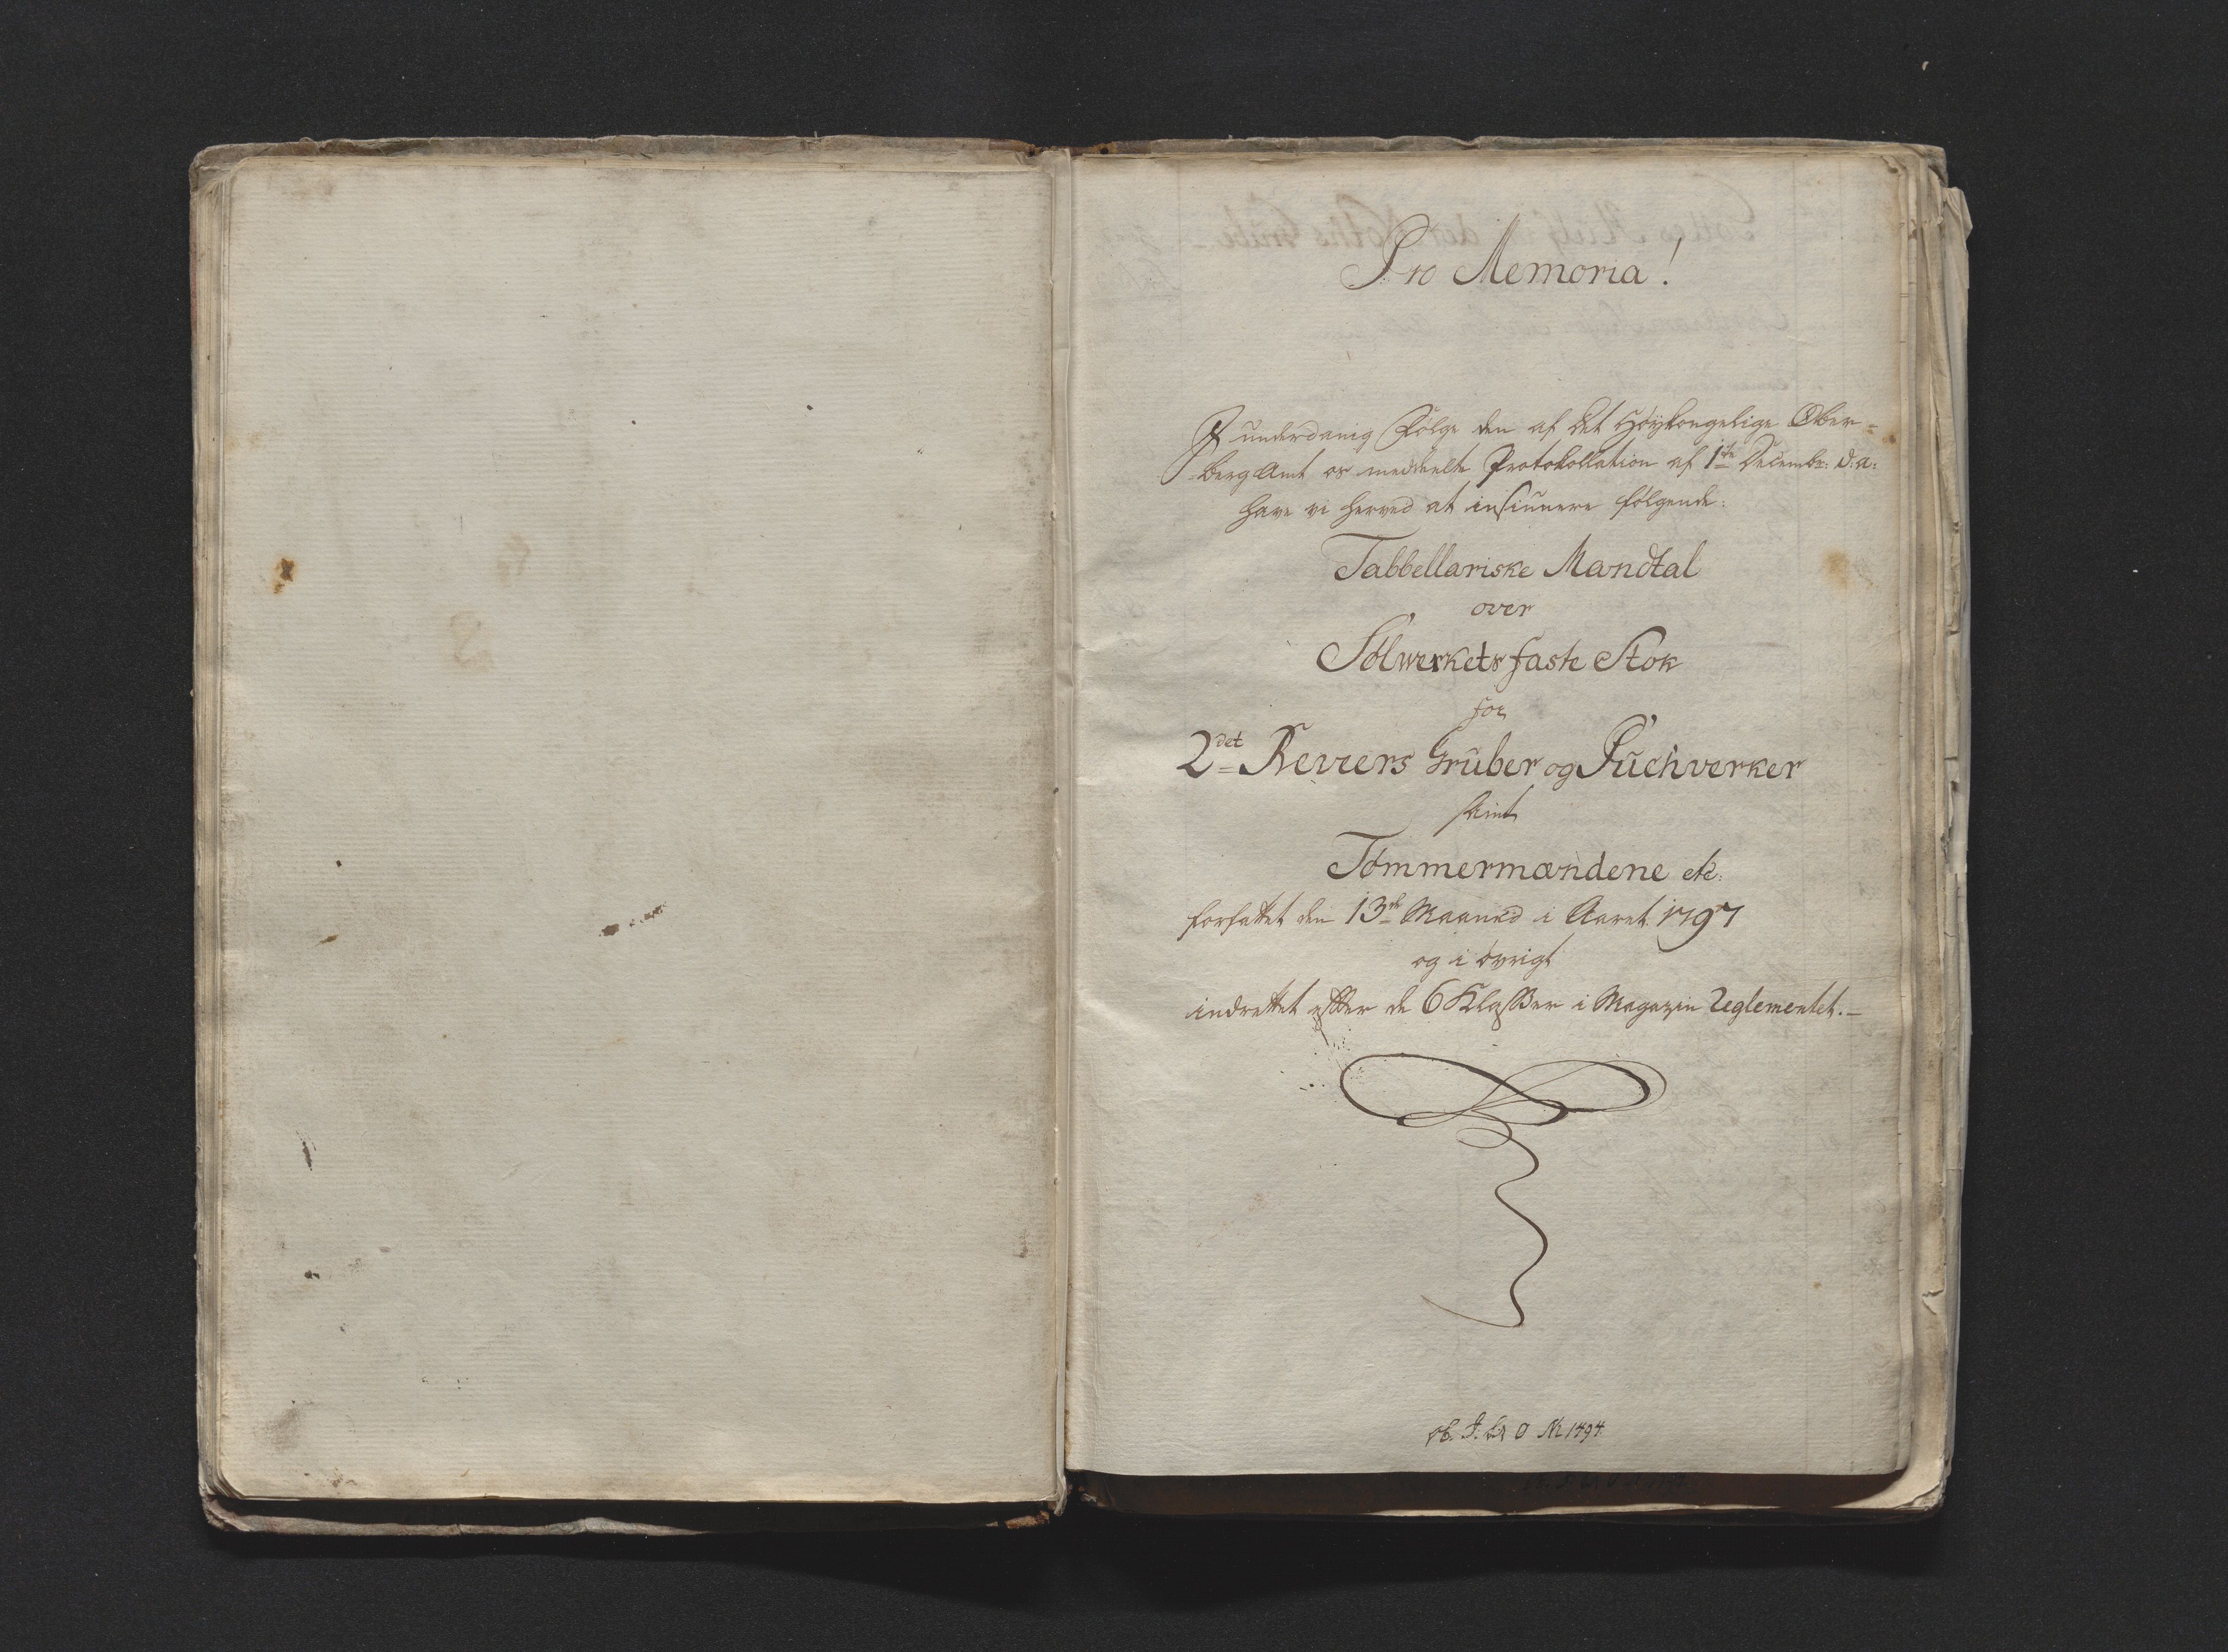 Pro Memoria!
I underdanig Følge den af det Höykongelige Ober-
bergAmt os meddeelte Protokollation af 1te Decembr: d: a:
have vi herved at insinuere følgende:
Tabbellariske Mandtal
over
Sölwerkets faste Stok
for
2det Reviers Grüber og Püchverker
samt
Tömmermændene etc:
forfattet den 13de Maaned i Aaret 1797
og i övrigt
indrettet efter de 6 Klasser i Magazin Reglementet.—
No 1494